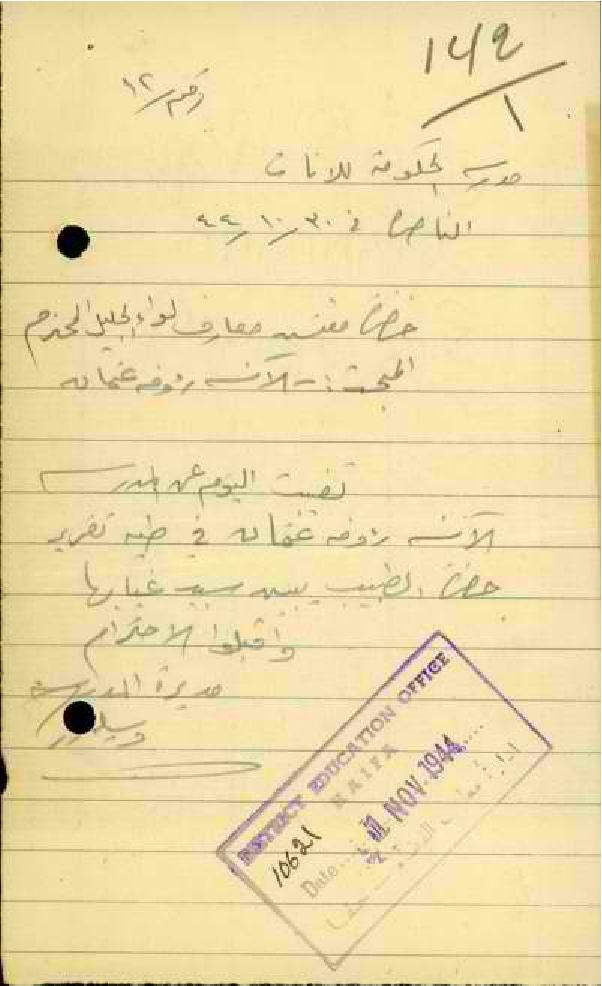 142/1
رقم/١٢
مدرسة الحكومة للاناث
الناصرة في ٣٠/١٠/٤٤
حضرة مفتش معارف لواء الجليل المحترم
المبحث :- الآنسة رؤوفة عثمان
تغيبت اليوم عن المدرسة
الآنسة رؤوفة عثمان في طيه تقرير
حضرة الطبيب يبين سبب غيابها
واقبلوا الاحترام
مديرة المدرسة
DISTRICT EDUCATION OFFICE
HAIFA
10621
Date 1 NOV. 1944
ادارة معارف